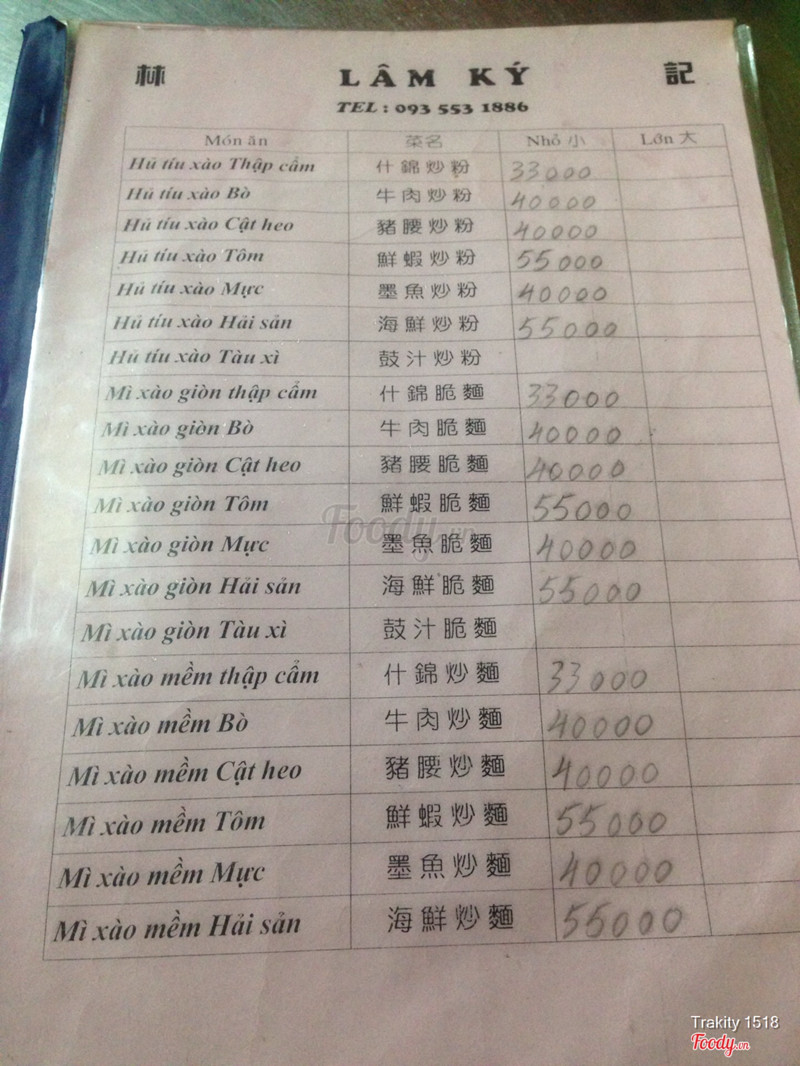 林 LÂM KÝ 記
TEL : 093 553 1886
Món ăn 菜名 Nhỏ 小 Lớn 大
Hủ tíu xào Thập cẩm 什錦炒粉 33000
Hủ tíu xào Bò 牛肉炒粉 40000
Hủ tíu xào Cật heo 豬腰炒粉 40000
Hủ tíu xào Tôm 鮮蝦炒粉 55000
Hủ tíu xào Mực 墨魚炒粉 40000
Hủ tíu xào Hải sản 海鮮炒粉 55000
Hủ tíu xào Tàu xì 鼓汁炒粉
Mì xào giòn thập cẩm 什錦脆麵 33000
Mì xào giòn Bò 牛肉脆麵 40000
Mì xào giòn Cật heo 豬腰脆麵 40000
Mì xào giòn Tôm 鮮蝦脆麵 55000
Mì xào giòn Mực 墨魚脆麵 40000
Mì xào giòn Hải sản 海鮮脆麵 55000
Mì xào giòn Tàu xì 鼓汁脆麵
Mì xào mềm thập cẩm 什錦炒麵 33000
Mì xào mềm Bò 牛肉炒麵 40000
Mì xào mềm Cật heo 豬腰炒麵 40000
Mì xào mềm Tôm 鮮蝦炒麵 55000
Mì xào mềm Mực 墨魚炒麵 40000
Mì xào mềm Hải sản 海鮮炒麵 55000
Foody.vn
Trakity 1518
Foody.vn